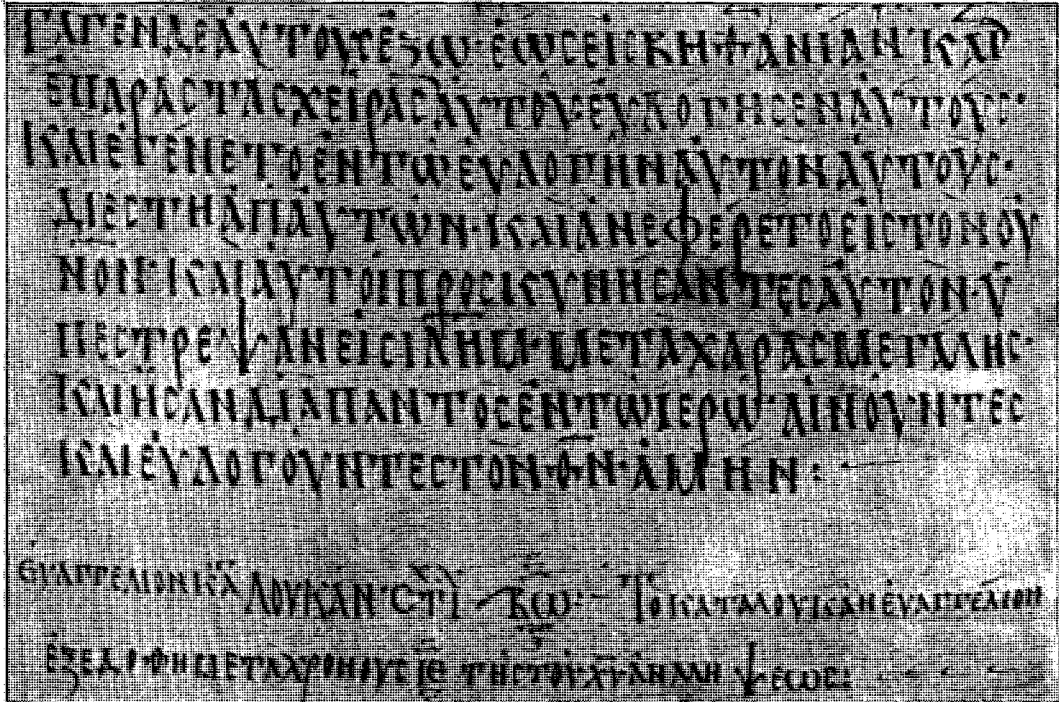 ΓΑΓΕΝΔΕΑΥΤΟΥΣΕΞΩ·ΕΩΣΕΙΣΒΗΘΑΝΙΑΝ·ΚΑΙ
ΕΠΑΡΑΣΤΑΣΧΕΙΡΑΣΑΥΤΟΥ·ΕΥΛΟΓΗΣΕΝΑΥΤΟΥΣ·
ΚΑΙΕΓΕΝΕΤΟΕΝΤΩΕΥΛΟΓΗΝΑΥΤΟΝΑΥΤΟΥΣ·
ΔΙΕΣΤΗΑΠΑΥΤΩΝ·ΚΑΙΑΝΕΦΕΡΕΤΟΕΙΣΤΟΝΟΥ
ΝΟΝ·ΚΑΙΑΥΤΟΙΠΡΟΣΚΥΝΗΣΑΝΤΕΣΑΥΤΟΝ·Υ
ΠΕΣΤΡΕΨΑΝΕΙΣΙΛΗΜ·ΜΕΤΑΧΑΡΑΣΜΕΓΑΛΗΣ·
ΚΑΙΗΣΑΝΔΙΑΠΑΝΤΟΣΕΝΤΩΙΕΡΩ·ΑΙΝΟΥΝΤΕΣ
ΚΑΙΕΥΛΟΓΟΥΝΤΕΣΤΟΝ·ΘΝ·ΑΜΗΝ:
ΕΥΑΓΓΕΛΙΟΝ ΚΑΤΑ ΛΟΥΚΑΝ·ΣΤΙΧ ΒΩ·ΤΟΚΑΤΑΛΟΥΚΑΝΕΥΑΓΓΕΛΙΟΝ
ΕΞΕΔΟΘΗΜΕΤΑΧΡΟΝΟΥΣ ΙΕ ΤΗΣΤΟΥΧΥΑΝΑΛΗΨΕΩΣ: